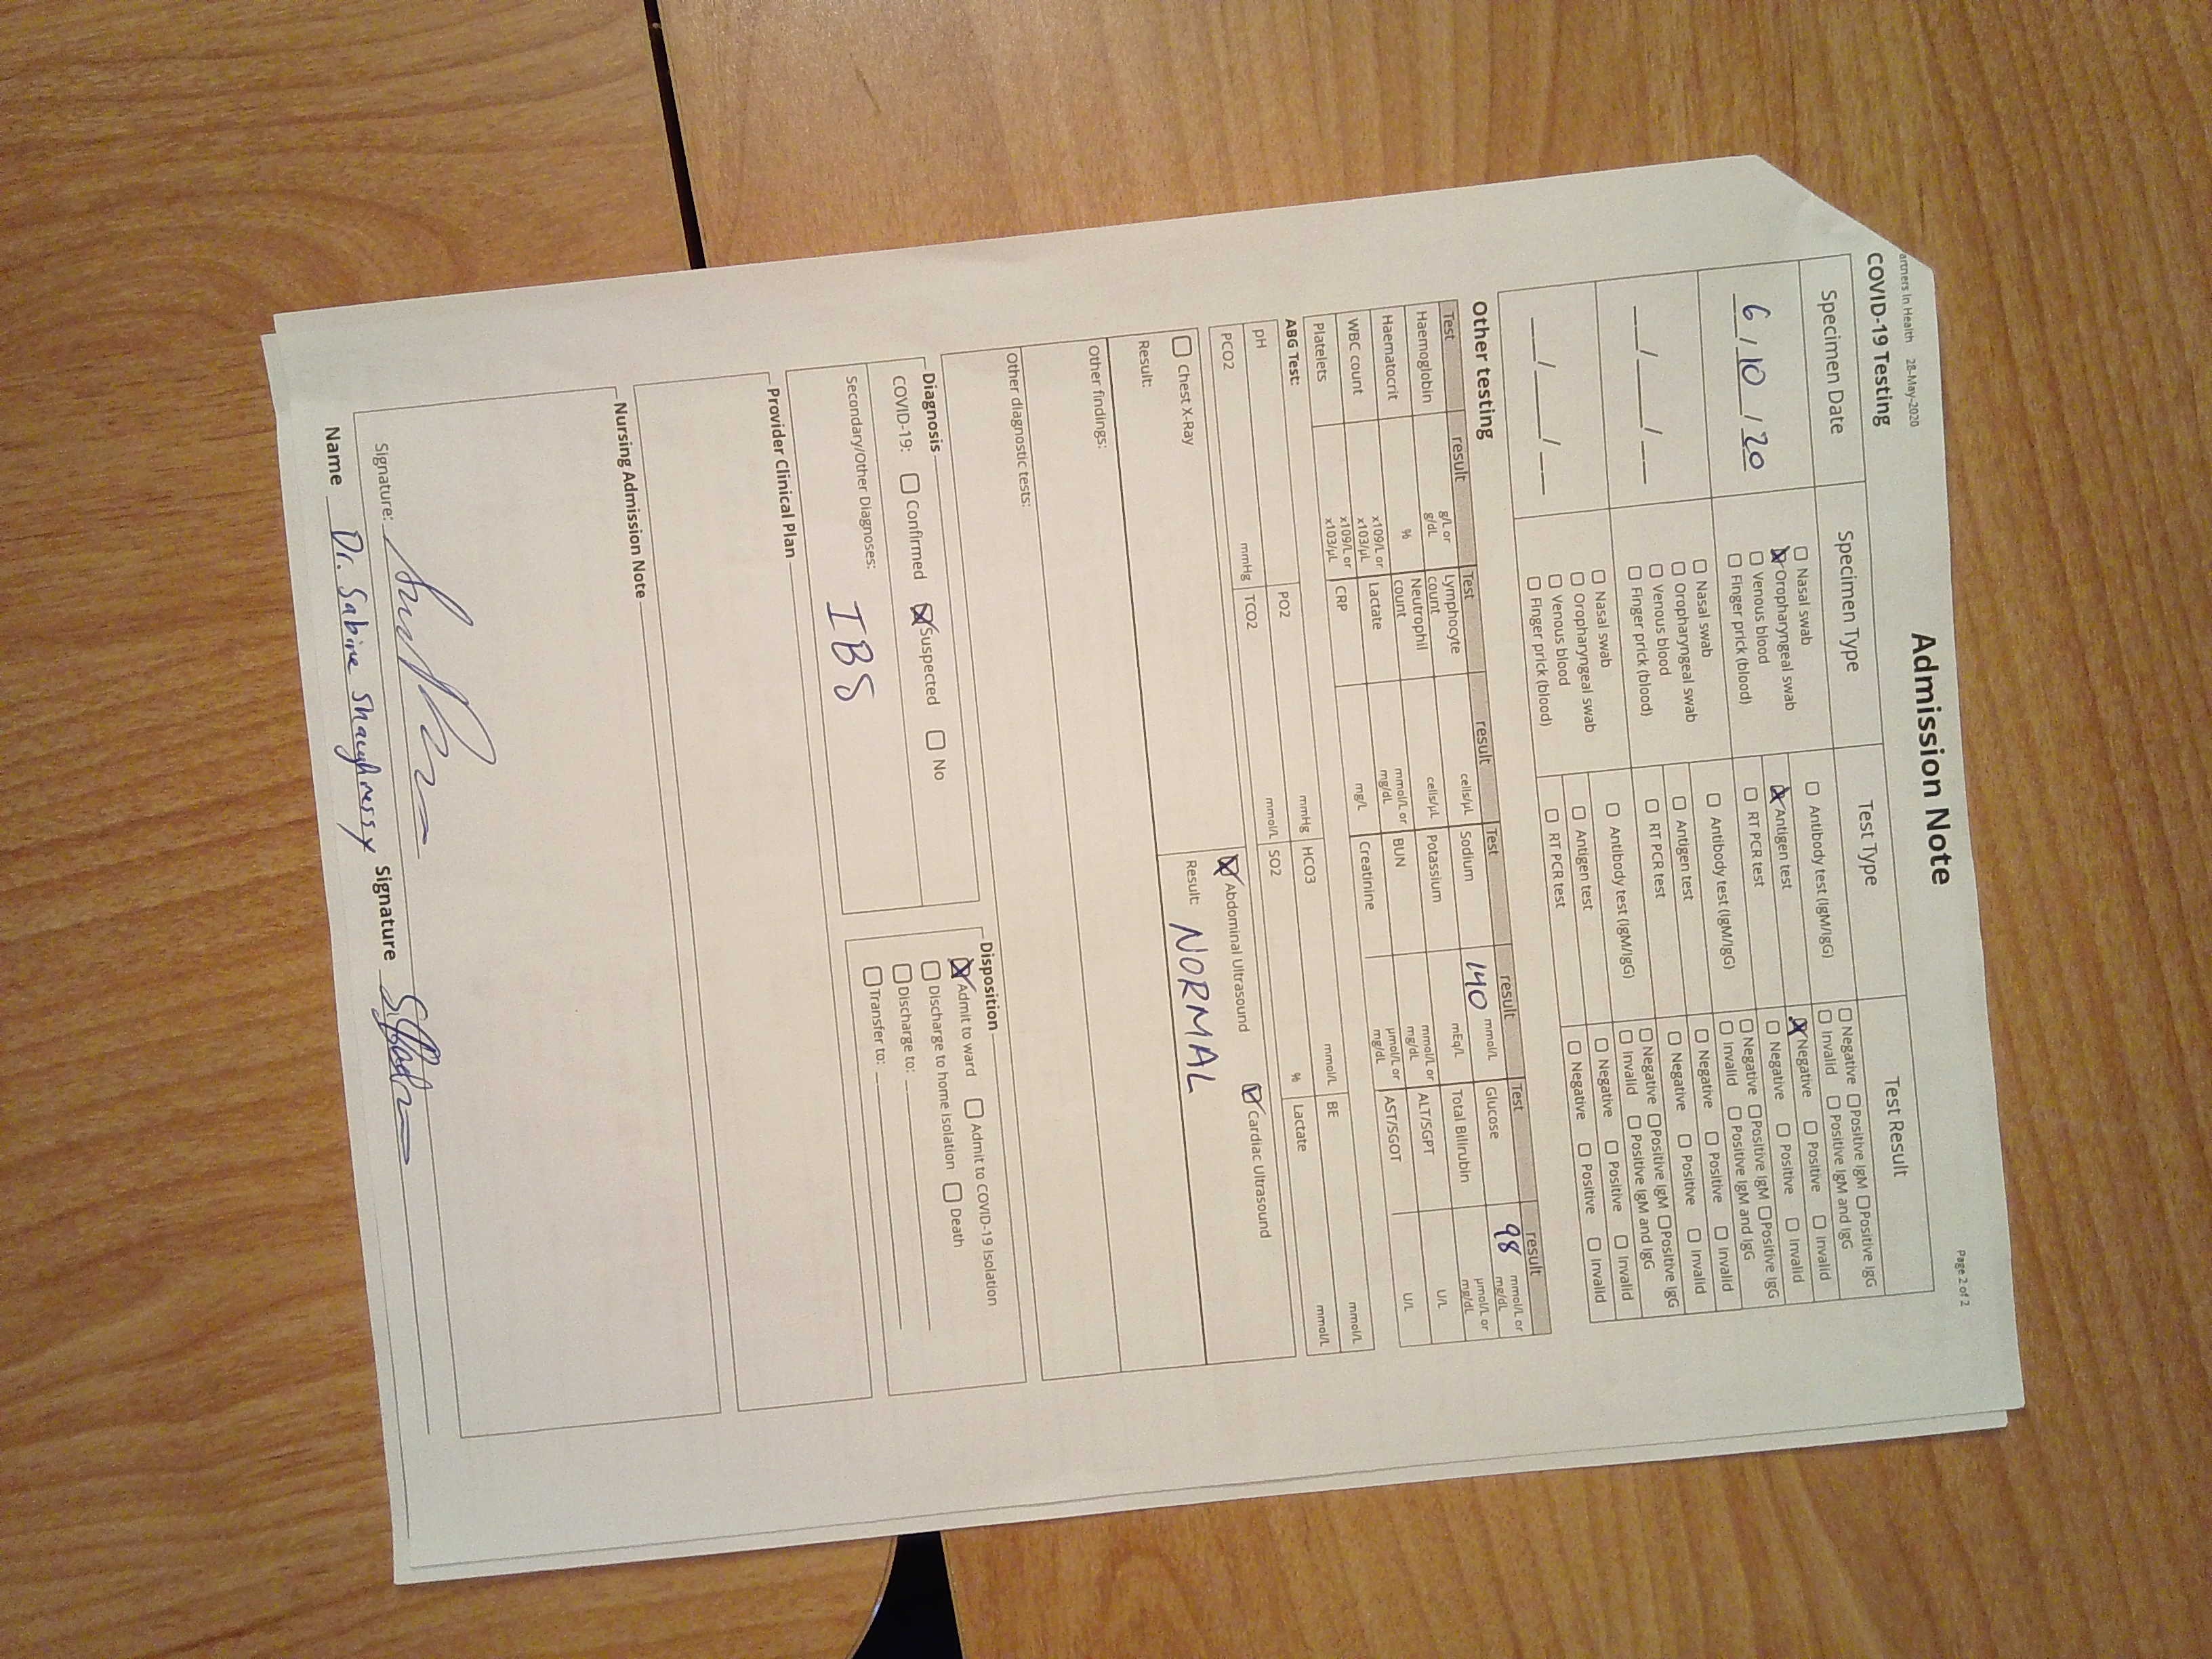 artners In Health 28-May-2020
Page 2 of 2
Admission Note
COVID-19 Testing
Specimen Date Specimen Type Test Type Test Result
6 / 10 / 20
☐ Nasal swab
☒ Oropharyngeal swab
☐ Venous blood
☐ Finger prick (blood)
☐ Antibody test (IgM/IgG) ☐ Negative ☐ Positive IgM ☐ Positive IgG
☐ Invalid ☐ Positive IgM and IgG
☒ Antigen test ☒ Negative ☐ Positive ☐ Invalid
☐ RT PCR test ☐ Negative ☐ Positive ☐ Invalid
__/__/__
☐ Nasal swab
☐ Oropharyngeal swab
☐ Venous blood
☐ Finger prick (blood)
☐ Antibody test (IgM/IgG) ☐ Negative ☐ Positive IgM ☐ Positive IgG
☐ Invalid ☐ Positive IgM and IgG
☐ Antigen test ☐ Negative ☐ Positive ☐ Invalid
☐ RT PCR test ☐ Negative ☐ Positive ☐ Invalid
__/__/__
☐ Nasal swab
☐ Oropharyngeal swab
☐ Venous blood
☐ Finger prick (blood)
☐ Antibody test (IgM/IgG) ☐ Negative ☐ Positive IgM ☐ Positive IgG
☐ Invalid ☐ Positive IgM and IgG
☐ Antigen test ☐ Negative ☐ Positive ☐ Invalid
☐ RT PCR test ☐ Negative ☐ Positive ☐ Invalid
Other testing
Test result Test result Test result Test result
Haemoglobin g/L or g/dL Lymphocyte count cells/µL Sodium 140 mmol/L Glucose 98 mmol/L or mg/dL
Haematocrit % Neutrophil count cells/µL Potassium mEq/L Total Bilirubin µmol/L or mg/dL
WBC count x109/L or x103/µL Lactate mmol/L or mg/dL BUN mmol/L or mg/dL ALT/SGPT U/L
Platelets x109/L or x103/µL CRP mg/L Creatinine µmol/L or mg/dL AST/SGOT U/L
ABG Test:
pH PO2 mmHg HCO3 mmol/L BE mmol/L
PCO2 mmHg TCO2 mmol/L SO2 % Lactate mmol/L
☐ Chest X-Ray ☒ Abdominal Ultrasound ☒ Cardiac Ultrasound
Result: Result: NORMAL
Other findings:
Other diagnostic tests:
Diagnosis
COVID-19: ☐ Confirmed ☒ Suspected ☐ No
Secondary/Other Diagnoses:
IBS
Disposition
☒ Admit to ward ☐ Admit to COVID-19 Isolation
☐ Discharge to home isolation ☐ Death
☐ Discharge to:
☐ Transfer to:
Provider Clinical Plan
Nursing Admission Note
Signature:
Name Dr. Sabine Shaughnessy Signature